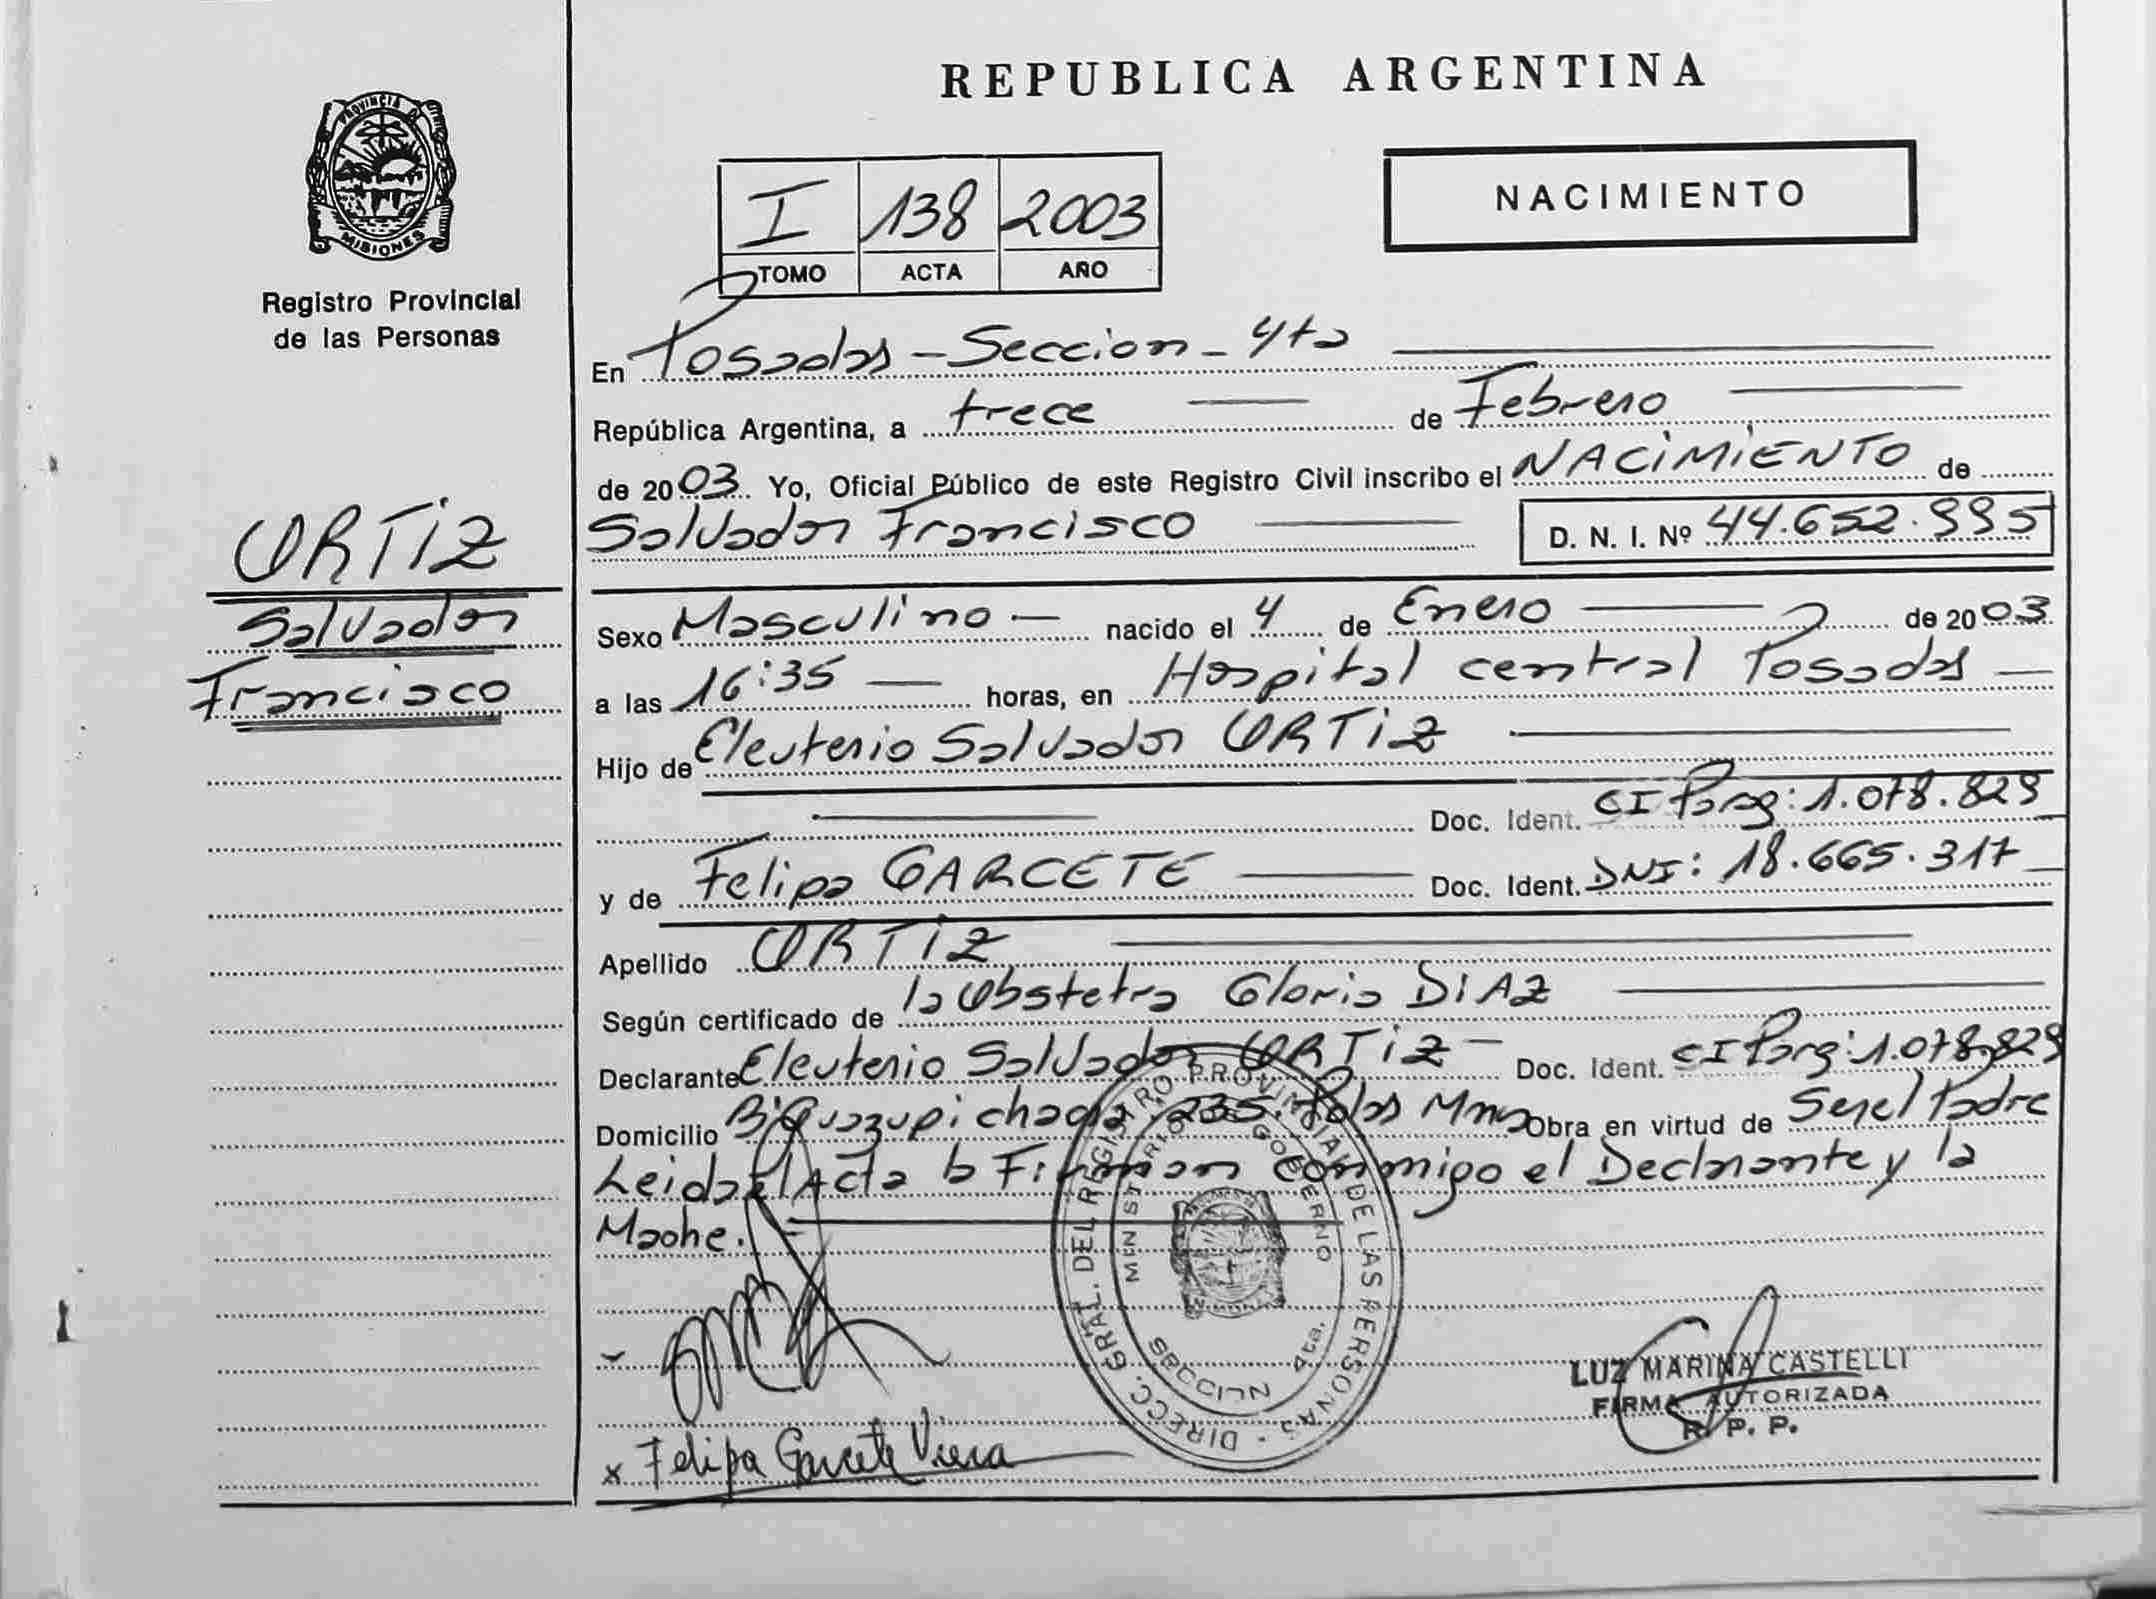 REPUBLICA ARGENTINA
PROVINCIA DE MISIONES
Registro Provincial
de las Personas
NACIMIENTO
I 138 2003
TOMO ACTA AÑO
En Posadas - Seccion - 4ta
República Argentina, a trece de Febrero
de 2003. Yo, Oficial Público de este Registro Civil inscribo el NACIMIENTO de
Salvador Francisco D. N. I. Nº 44.652.995
ORTIZ
Salvador
Francisco
Sexo Masculino nacido el 4 de Enero de 2003
a las 16:35 horas, en Hospital central Posadas
Hijo de Eleuterio Salvador ORTIZ
Doc. Ident. CI Parag: 1.078.829
y de Felipa GARCETE Doc. Ident. DNI: 18.665.317
Apellido ORTIZ
Según certificado de la Obstetra Gloria DIAZ
Declarante Eleuterio Salvador ORTIZ Doc. Ident. CI Parg: 1.078.829
Domicilio Bº 235. Pdas Mnes Obra en virtud de Ser el Padre
Leida el Acta la Firman conmigo el Declarante y la
Madre.
DIRECC. GRAL. DEL REGISTRO PROVINCIAL DE LAS PERSONAS
MINISTERIO DE GOBIERNO
SECCION 4ta.
LUZ MARINA CASTELLI
FIRMA AUTORIZADA
R. P. P.
x Felipa Garcete Viera